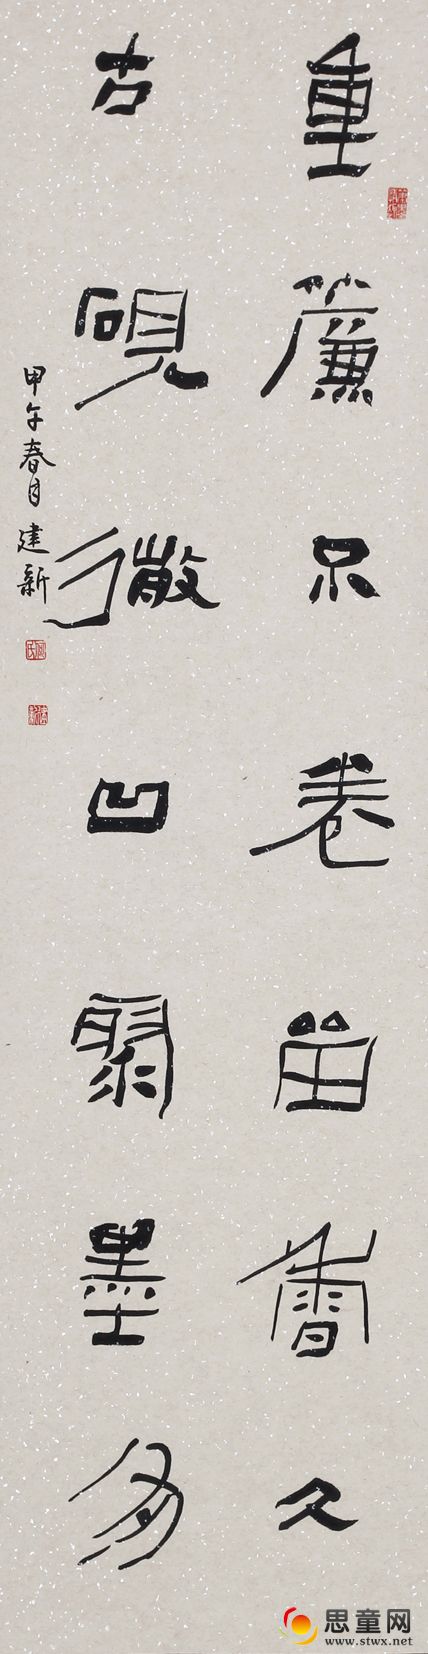 重簾不卷留香久
古硯微凹聚墨多
甲午春月建新
思童网
www.stwx.net